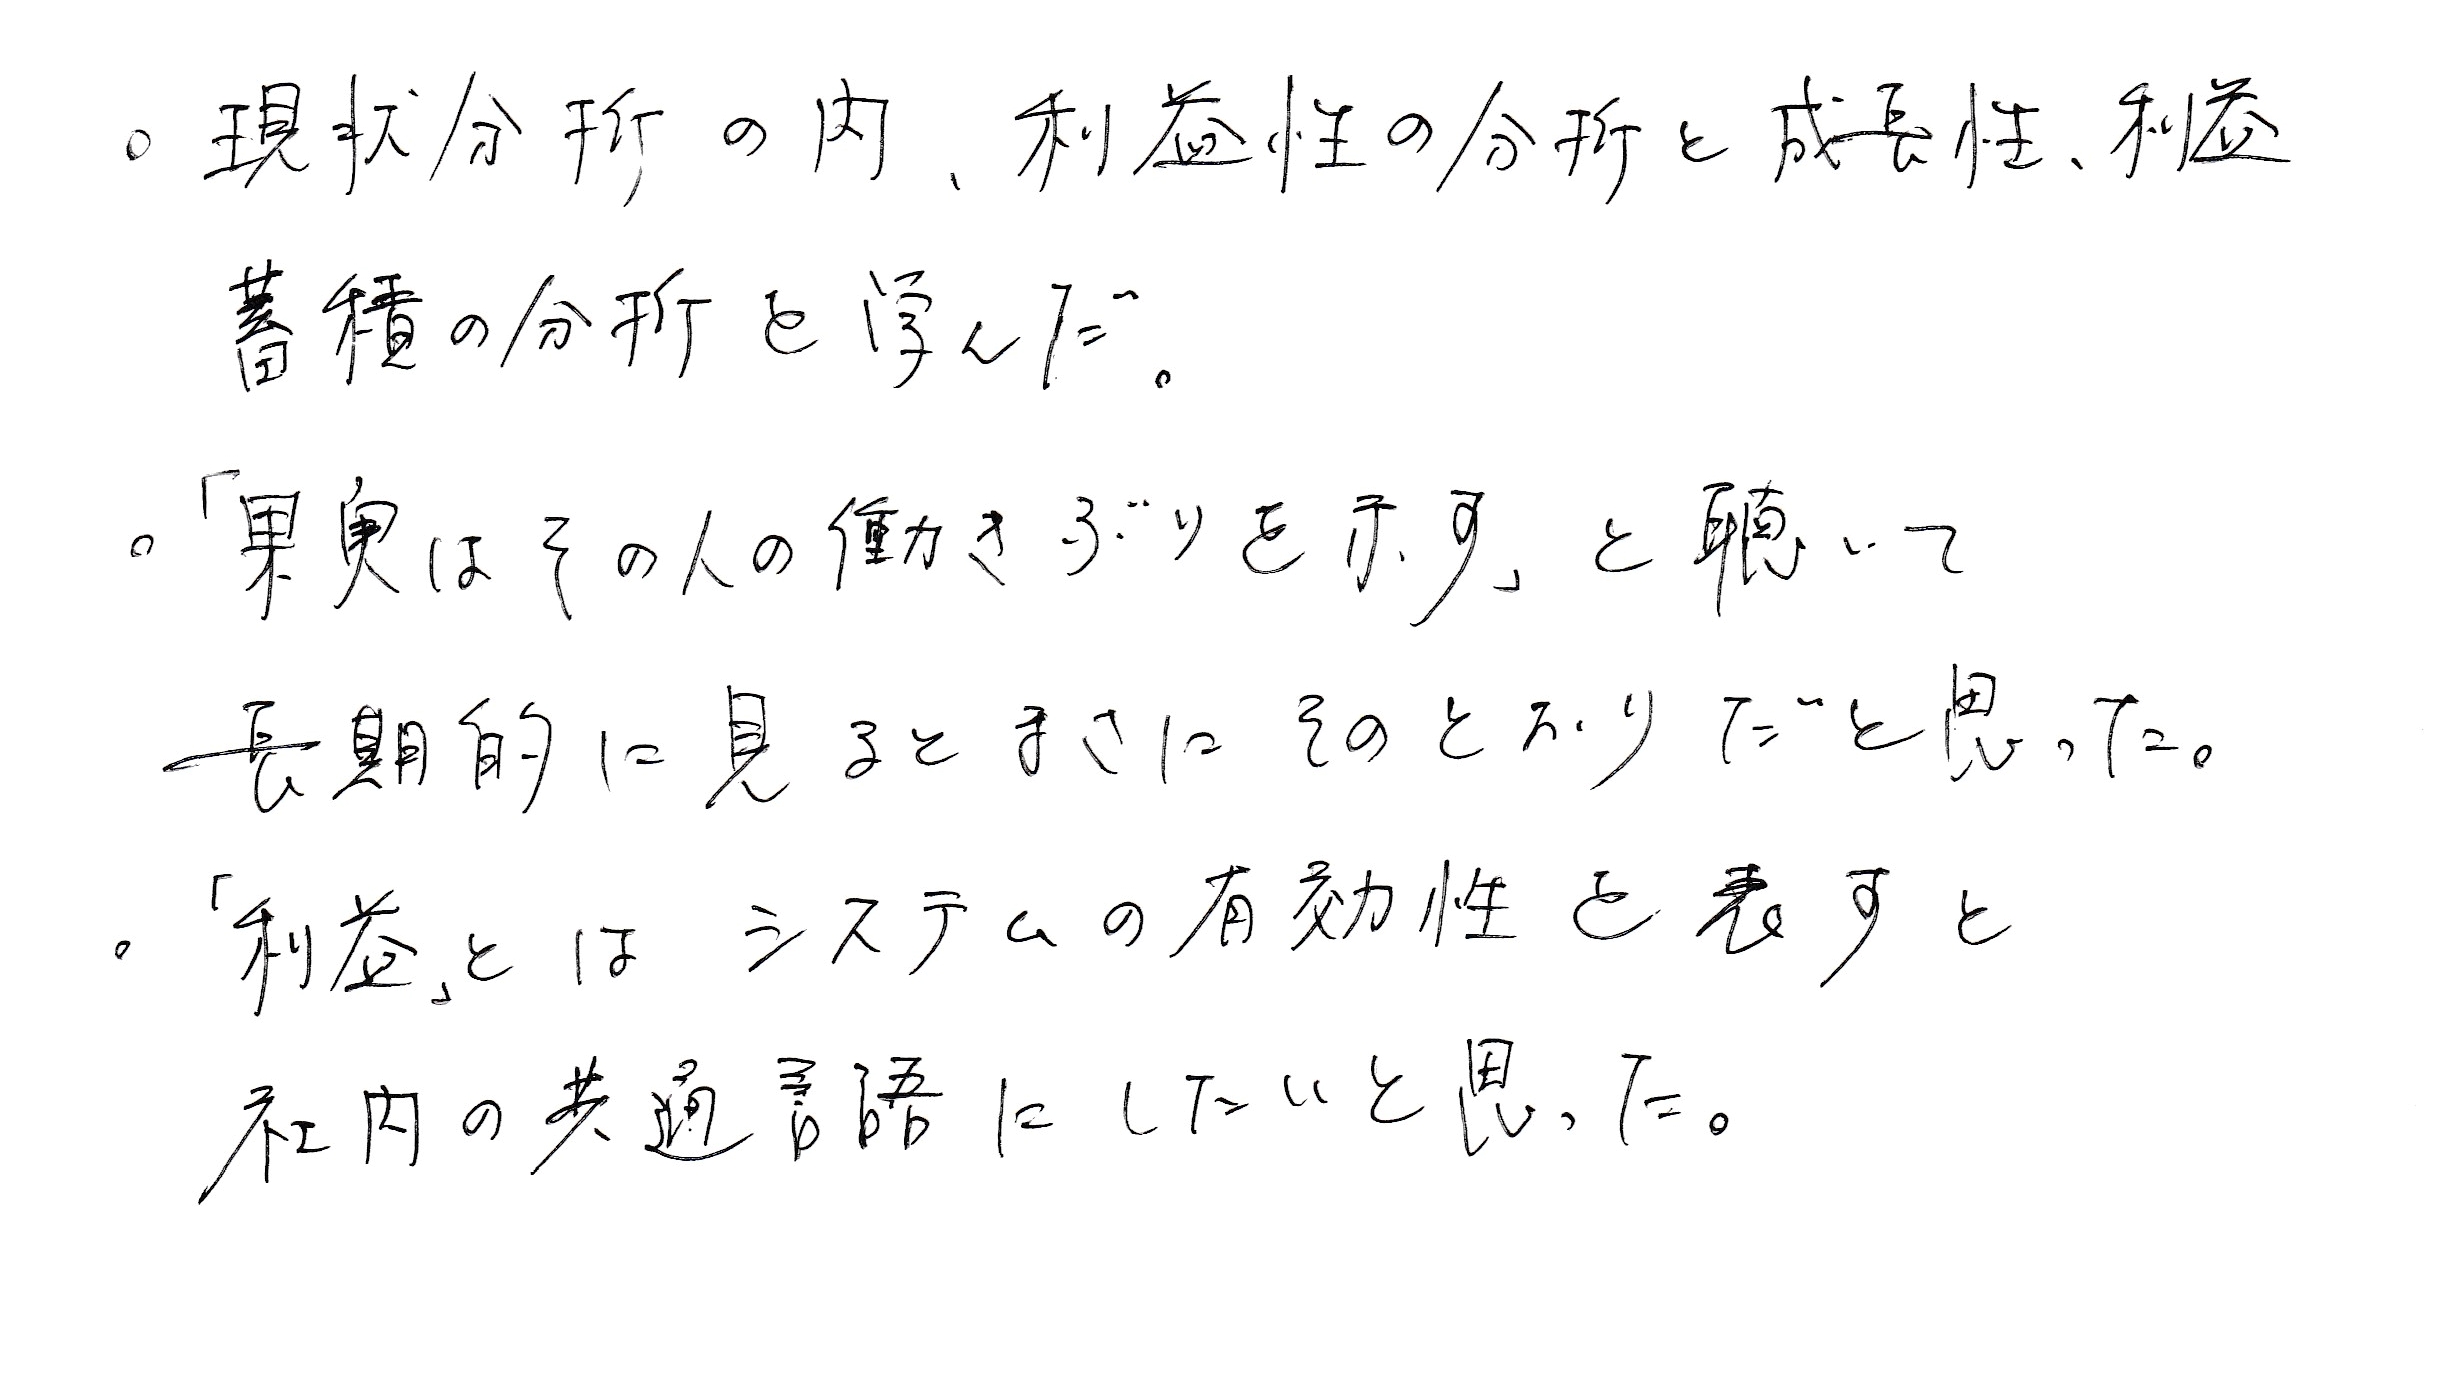 。現状分析の内、利益性の分析と成長性、利益
蓄積の分析を学んだ。
。「果実はその人の働きぶりを示す」と聴いて
長期的に見るとまさにそのとおりだと思った。
。「利益」とはシステムの有効性を表すと
社内の共通言語にしたいと思った。